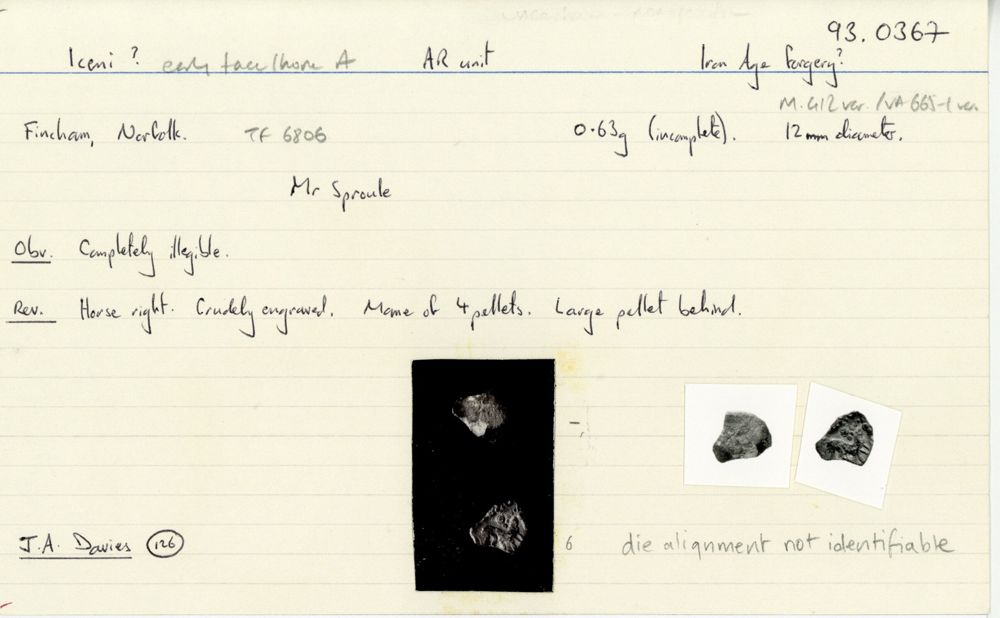 93.0367
Iceni ? early face/horse A AR unit Iron Age forgery?
M. 412 var. /VA 665-1 var.
Fincham, Norfolk. TF 6806 0.63g (incomplete). 12mm diameter.
Mr Sproule
Obv. Completely illegible.
Rev. Horse right. Crudely engraved. Mane of 4 pellets. Large pellet behind.
J.A. Davies 126 6 die alignment not identifiable